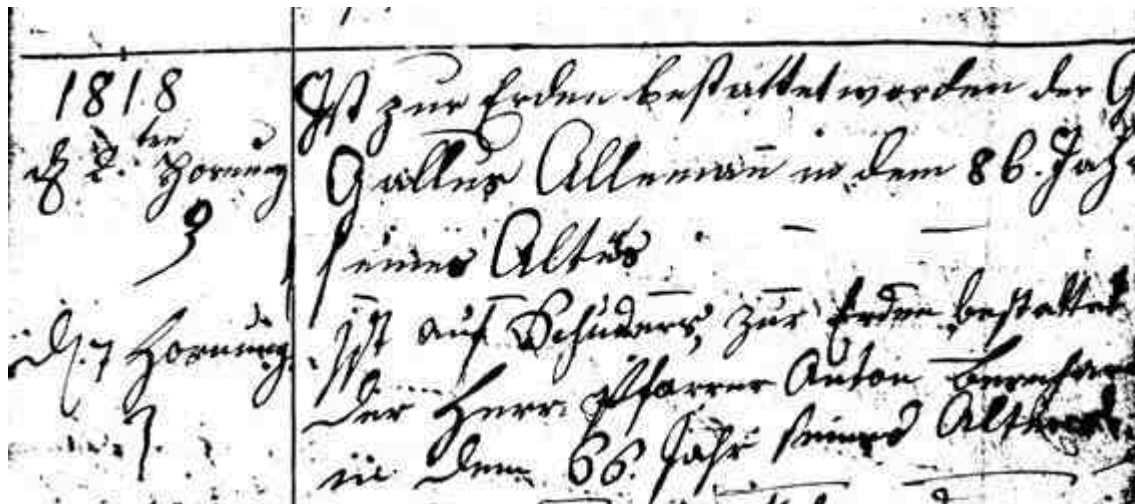 1818
d. 2.ten Hornung
3
Ist zur Erden bestattet worden der G
Gallus Allemañ in dem 86. Jahr
seines Alters
d. 7 Hornung
ist auf Schuders, zur Erden bestattet
der Herr Pfarrer Anton
in dem 66. Jahr seines Alters